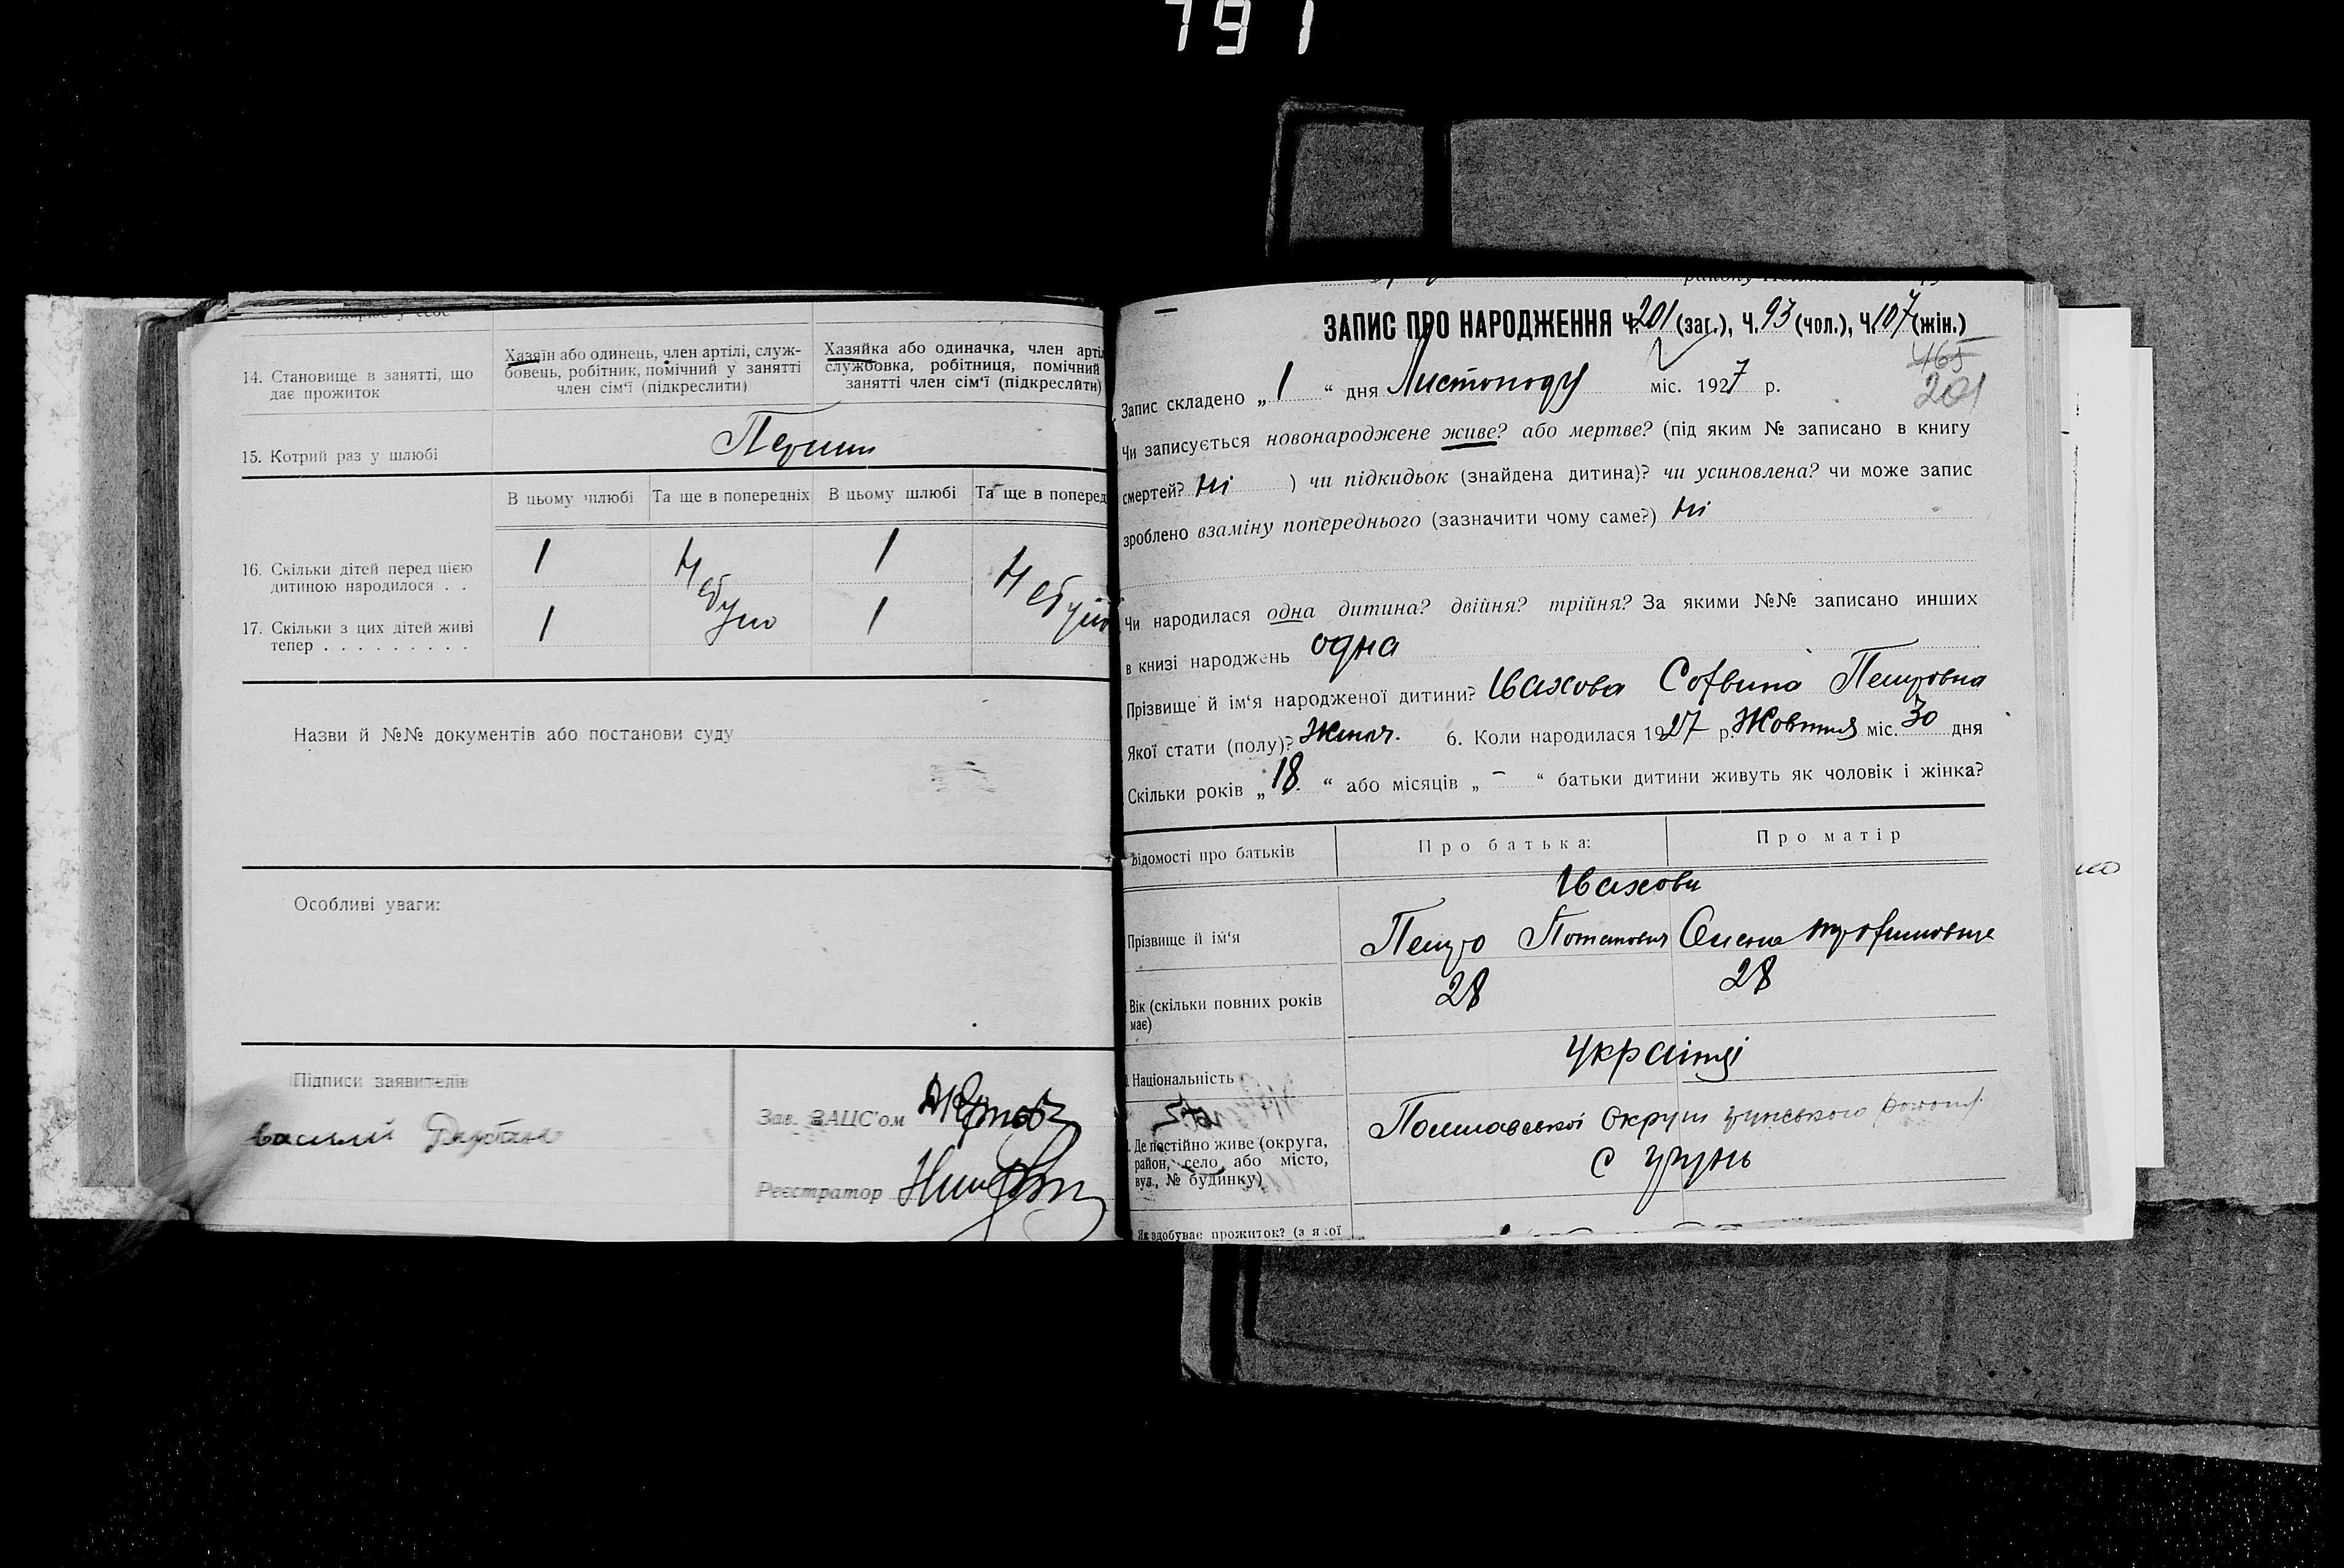 791
14. Становище в занятті, що дає прожиток
Хазяїн або одинець, член артілі, служ-
бовець, робітник, помічний у занятті
член сім'ї (підкреслити)
Хазяйка або одиначка, член артіл
службовка, робітниця, помічний
занятті член сім'ї (підкреслити)
15. Котрий раз у шлюбі
Перший
В цьому шлюбі Та ще в попередніх В цьому шлюбі Та ще в поперед
16. Скільки дітей перед цією
дитиною народилося . .
1 Не було 1 Не було
17. Скільки з цих дітей живі
тепер . . . . . . . . .
1 1
Назви й №№ документів або постанови суду
Особливі уваги:
Підписи заявителів
Василий
Зав. ЗАЦС'ом
Реєстратор
ЗАПИС ПРО НАРОДЖЕННЯ Ч. 201 (заг.), Ч. 93 (чол.), Ч. 107 (жін.)
465
201
Запис складено „ 1 “ дня Листопаду міс. 1927 р.
Чи записується новонароджене живе? або мертве? (під яким № записано в книгу
смертей? Ні ) чи підкидьок (знайдена дитина)? чи усиновлена? чи може запис
зроблено взаміну попереднього (зазначити чому саме?) Ні
Чи народилася одна дитина? двійня? трійня? За якими №№ записано инших
в книзі народжень одна
Прізвище й ім'я народженої дитини? Івахова Петровна
Якої стати (полу)? Жіноч. 6. Коли народилася 1927 р. Жовтня міс. 30 дня
Скільки років „ 18 “ або місяців „ - “ батьки дитини живуть як чоловік і жінка?
Відомості про батьків Про батька: Про матір
Івахови
Прізвище й ім'я Петро Потапович Олена Трофимовна
Вік (скільки повних років
має)
28 28
Національність
Українці
Де постійно живе (округа,
район, село або місто,
вул., № будинку)
Полтавської Округи Грунського району
с Грунь
Як здобуває прожиток? (з якої